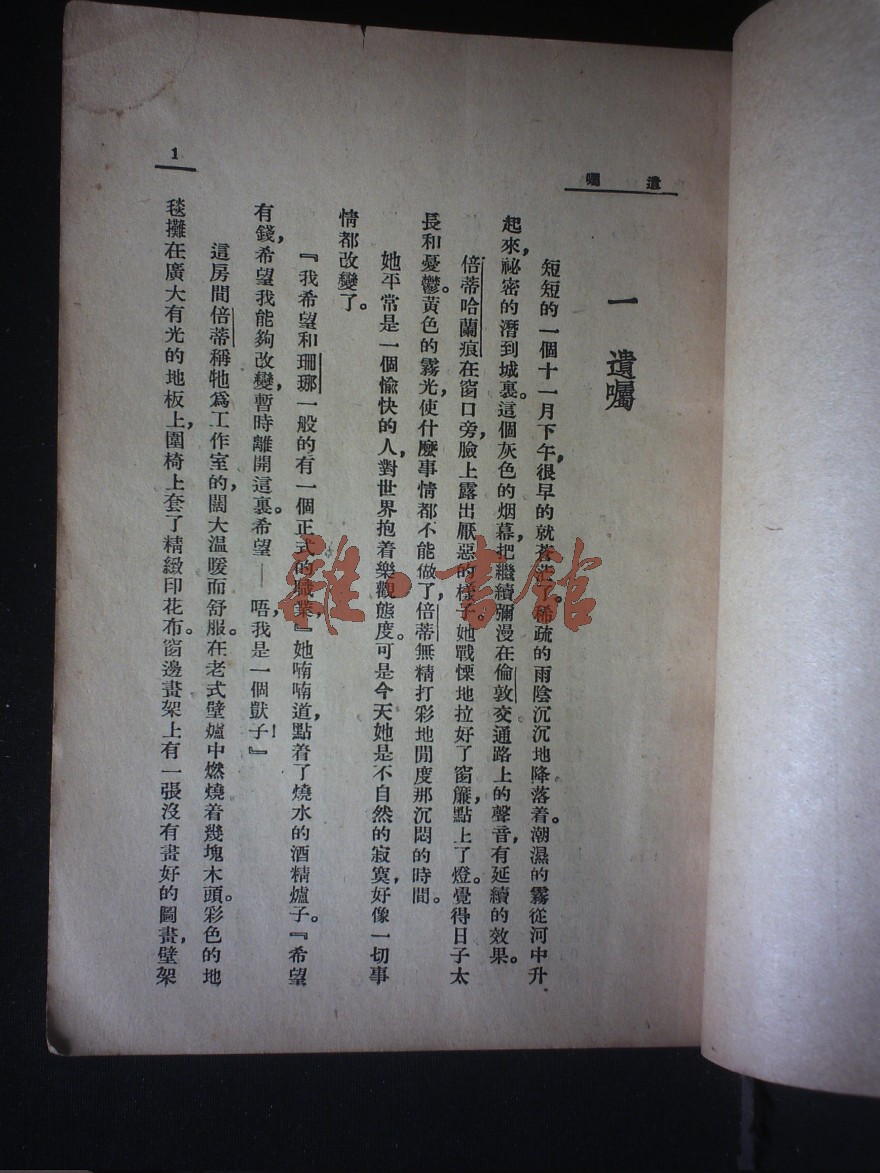 遺囑
一 遺囑
短短的一個十一月下午，很早的就蒼茫了。稀疏的雨陰沉沉地降落着。潮濕的霧從河中升
起來，祕密的潛到城裏。這個灰色的烟幕，把繼續彌漫在倫敦交通路上的聲音，有延續的效果。
倍蒂哈蘭痕在窗口旁，臉上露出厭惡的樣子。她戰慄地拉好了窗簾，點上了燈。覺得日子太
長和憂鬱。黃色的霧光，使什麼事情都不能做了，倍蒂無精打彩地閒度那沉悶的時間。
她平常是一個愉快的人，對世界抱着樂觀態度。可是今天她是不自然的寂寞，好像一切事
情都改變了。
『我希望和珊娜一般的有一個正式的職業，』她喃喃道，點着了燒水的酒精爐子。『希望
有錢，希望我能夠改變，暫時離開這裏。希望—— 唔，我是一個獃子！』
這房間倍蒂稱牠爲工作室的，闊大溫暖而舒服。在老式壁爐中燃燒着幾塊木頭。彩色的地
毯攤在廣大有光的地板上，圍椅上套了精緻印花布。窗邊畫架上有一張沒有畫好的圖畫，壁架
1
雜·書館